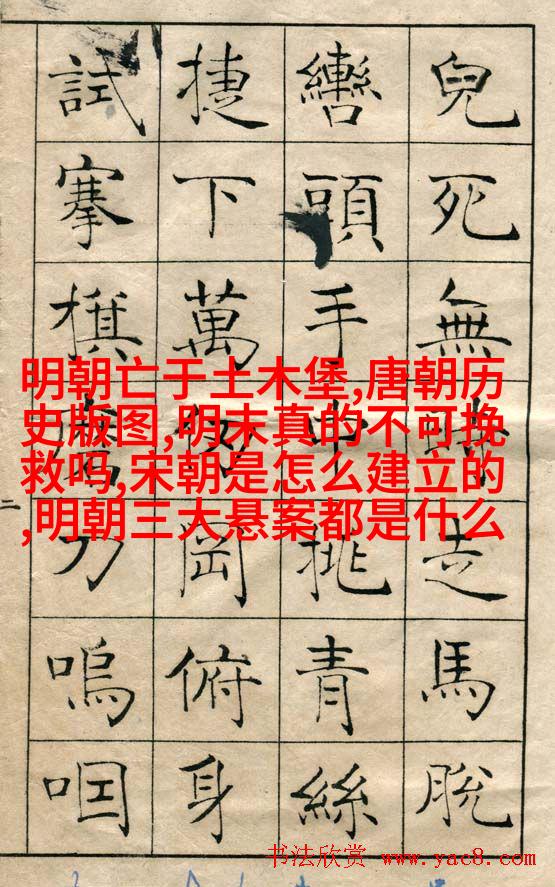 兒死無走馬脫
轡頭手中挑青絲
捷下萬岡俯身
試搴旗刀嗚咽
二
明朝亡于土木堡,唐朝历
史版图,明末真的不可挽
救吗,宋朝是怎么建立的
,明朝三大悬案都是什么
书法欣赏 www.yac8.com